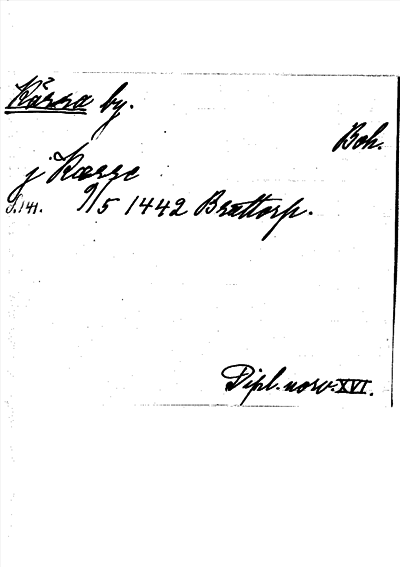 Kärra by.
Boh.
j Kærre
S. 141. 9/5 1442 Brattorp.
Dipl. norv. XVI.